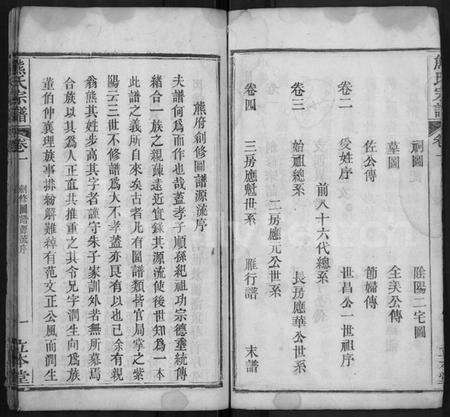 熊氏宗譜
卷一
祠圖　　陰陽二宅圖
墓圖　　全美公傳
佐公傳　　節婦傳
卷二
受姓序　　世昌公一世祖序
前八十六代總系
卷三
始祖總系　　長房應華公世系
二房應元公世系
卷四
三房應魁世系　　雁行譜　　末譜
熊府創修圖譜源流序
夫譜何為而作也哉蓋孝子順孫紀祖功宗德垂統傳
緒合一族之親疎遠近實錄其源流使後世知為一本
此譜之義所自來矣古者凡有圖譜類皆官局掌之紫
陽云三世不修譜為人不孝蓋亦良有以也已余有親
翁熊其姓步高其字者謹守朱子家訓外者無所慕焉
合族以其為人正直共推重之其令兄字潤生向為族
董伯仲襄理族事排紛解難綽有范文正公風而潤生
熊氏宗譜
卷一
創修圖譜源流序
一
立本堂